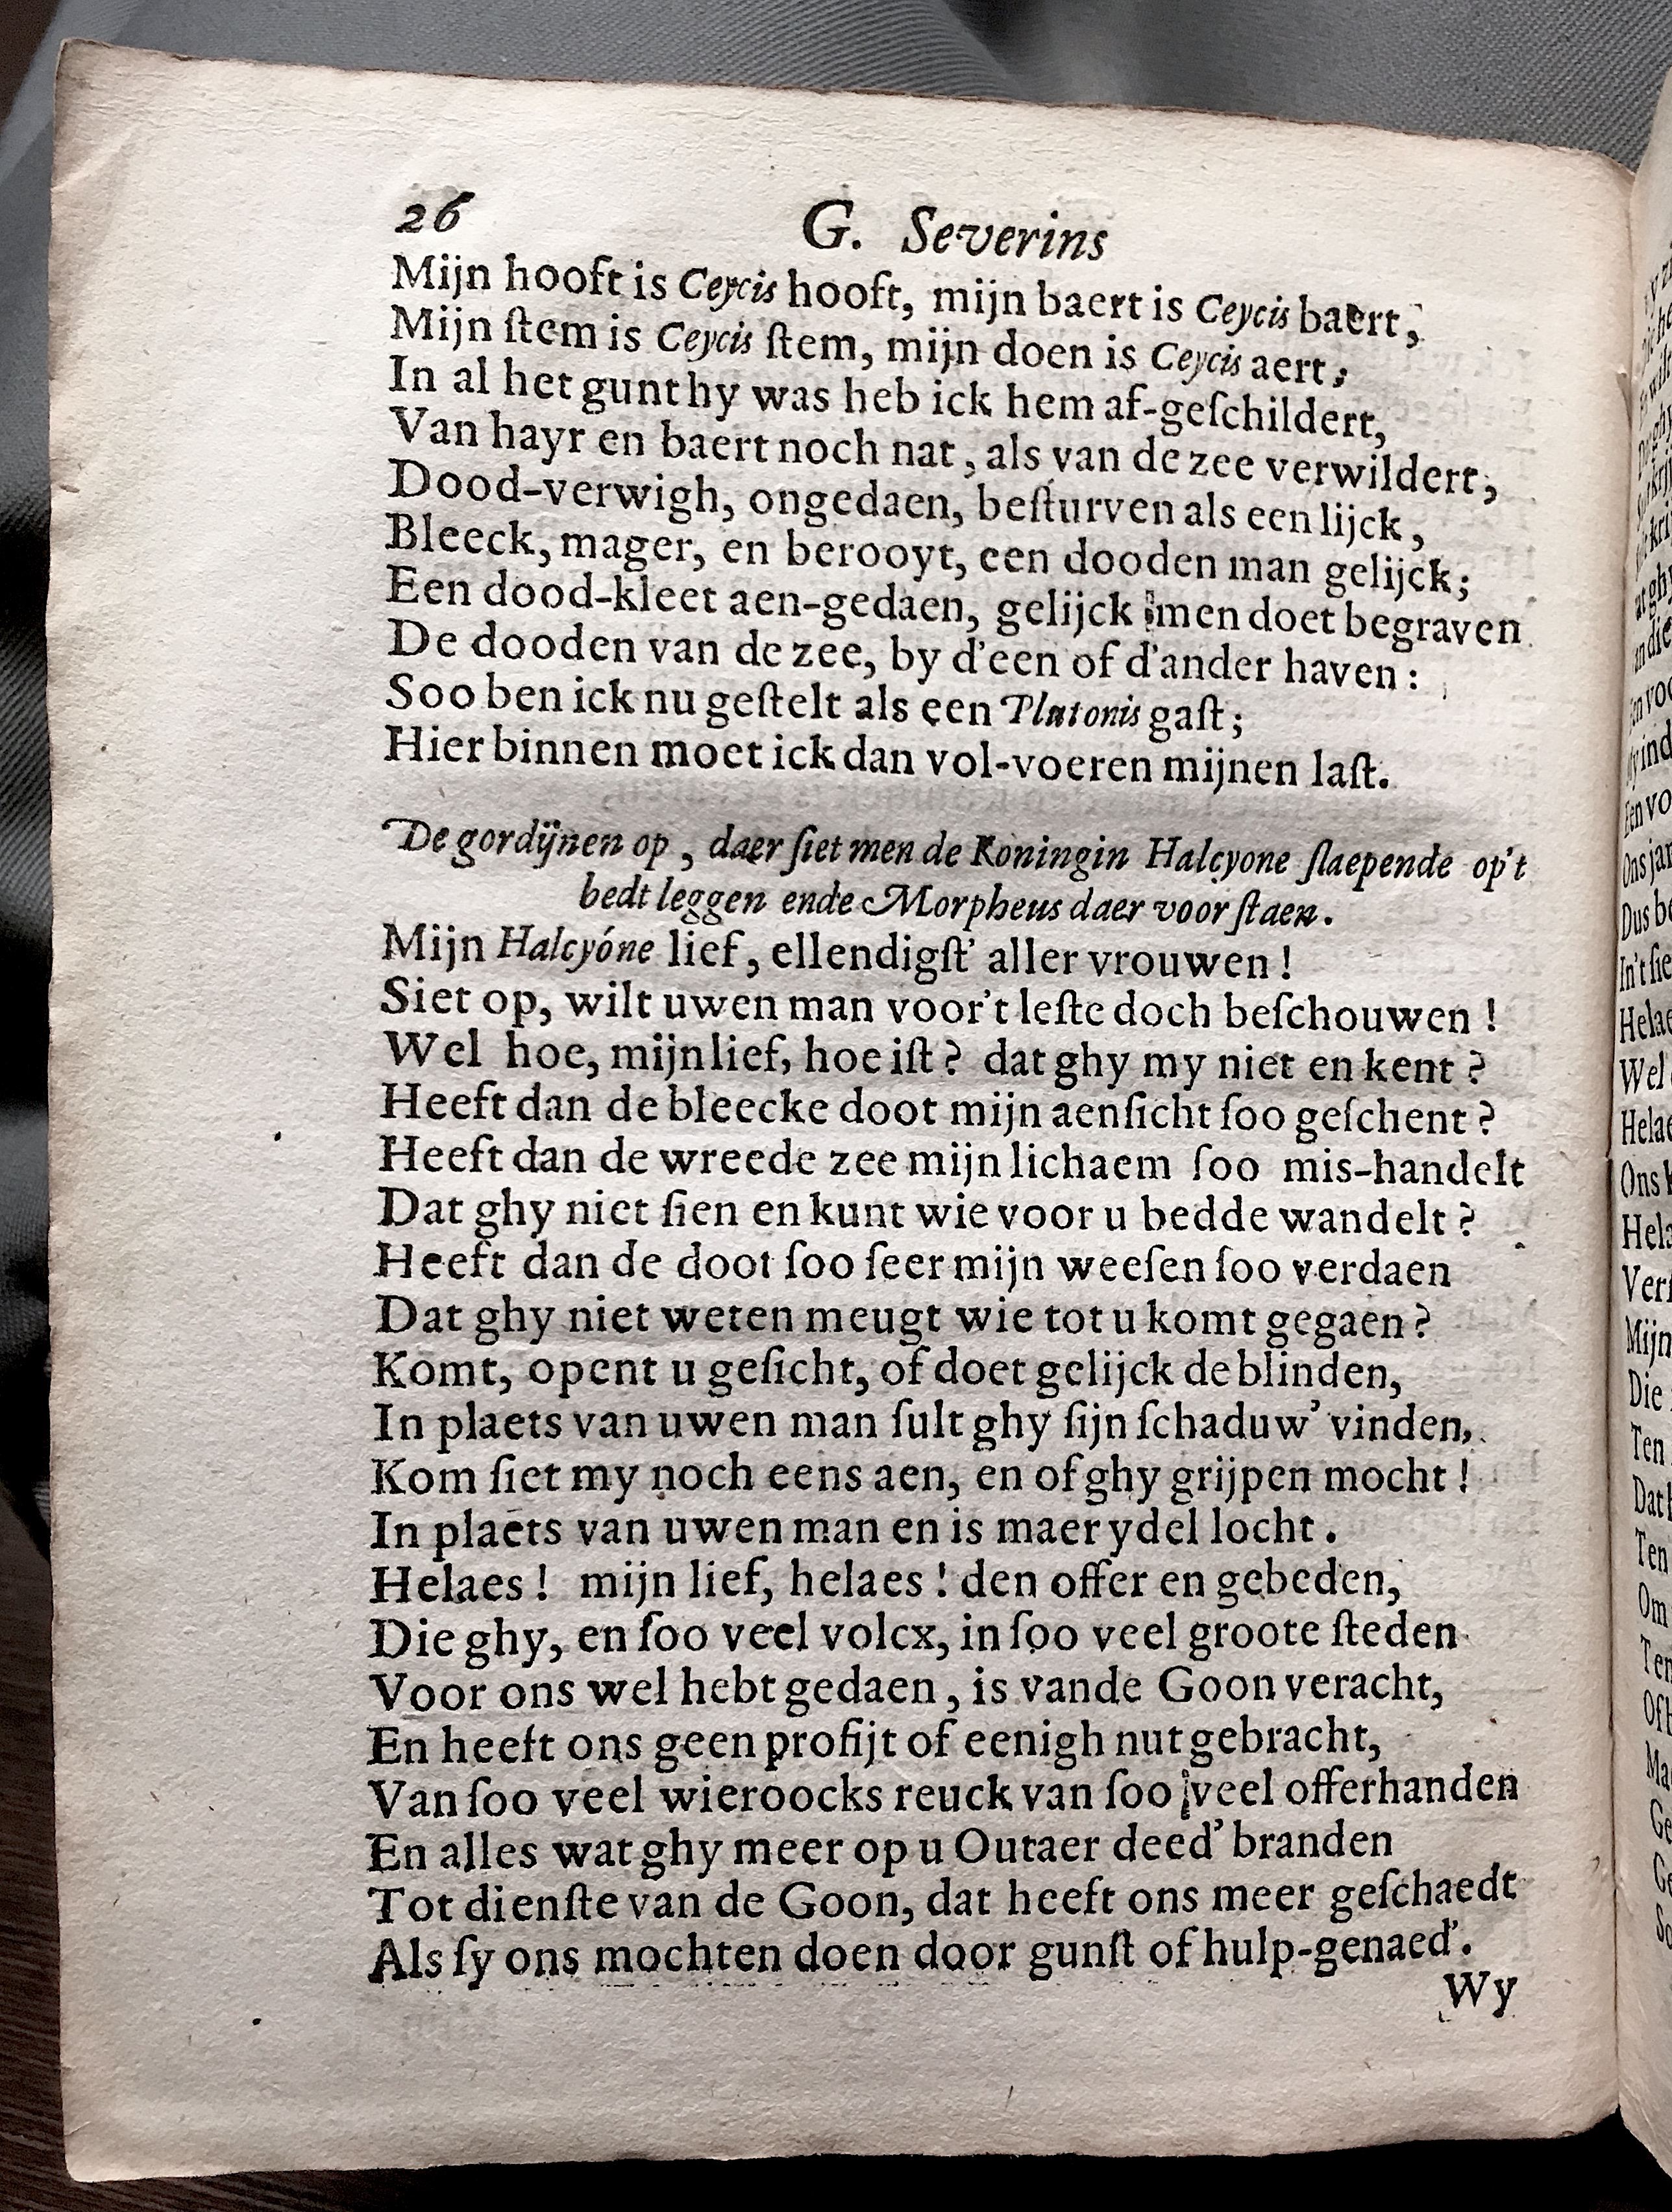 26 G. Severins
Mijn hooft is Ceycis hooft, mijn baert is Ceycis baert,
Mijn ſtem is Ceycis ſtem, mijn doen is Ceycis aert;
In al het gunt hy was heb ick hem af-geſchildert,
Van hayr en baert noch nat, als van de zee verwildert;
Dood-verwigh, ongedaen, beſturven als een lijck,
Bleeck, mager, en berooyt, een dooden man gelijck;
Een dood-kleet aen-gedaen, gelijck men doet begraven
De dooden van de zee, by d'een of d'ander haven:
Soo ben ick nu geſtelt als een Plutonis gaſt;
Hier binnen moet ick dan vol-voeren mijnen laſt.
De gordijnen op, daer ſiet men de Koningin Halcyone ſlaepende op't
bedt leggen ende Morpheus daer voor ſtaen.
Mijn Halcyóne lief, ellendigſt' aller vrouwen!
Siet op, wilt uwen man voor't leſte doch beſchouwen!
Wel hoe, mijn lief, hoe iſt? dat ghy my niet en kent?
Heeft dan de bleecke doot mijn aenſicht ſoo geſchent?
Heeft dan de wreede zee mijn lichaem ſoo mis-handelt
Dat ghy niet ſien en kunt wie voor u bedde wandelt?
Heeft dan de doot ſoo ſeer mijn weeſen ſoo verdaen
Dat ghy niet weten meugt wie tot u komt gegaen?
Komt, opent u geſicht, of doet gelijck de blinden,
In plaets van uwen man ſult ghy ſijn ſchaduw' vinden,
Kom ſiet my noch eens aen, en of ghy grijpen mocht!
In plaets van uwen man en is maer ydel locht.
Helaes! mijn lief, helaes! den offer en gebeden,
Die ghy, en ſoo veel volcx, in ſoo veel groote ſteden
Voor ons wel hebt gedaen, is vande Goon veracht,
En heeft ons geen profijt of eenigh nut gebracht,
Van ſoo veel wieroocks reuck van ſoo veel offerhanden
En alles wat ghy meer op u Outaer deed' branden
Tot dienſte van de Goon, dat heeft ons meer geſchaedt
Als ſy ons mochten doen door gunſt of hulp-genaed'.
Wy